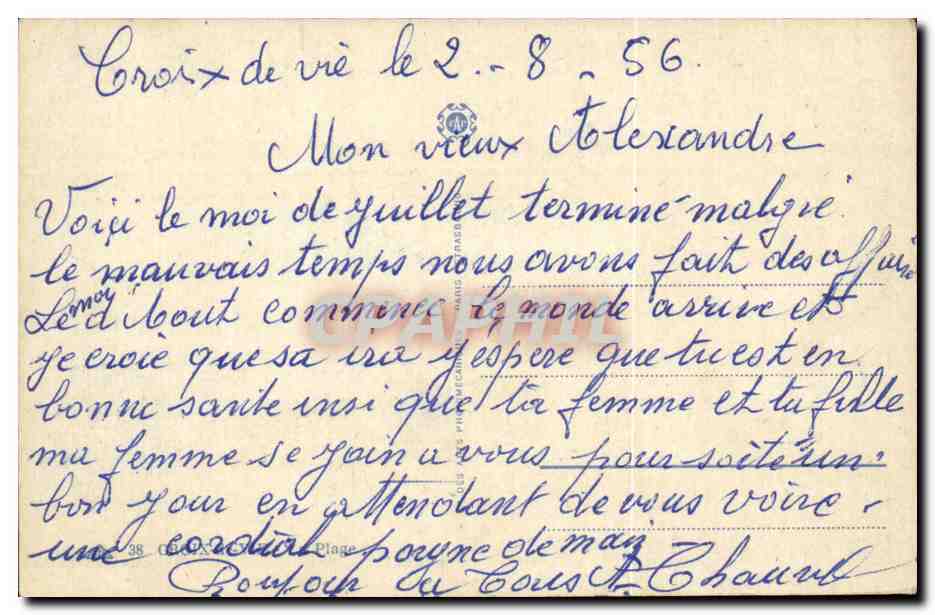 Croix de vie le 2.-8-56.
Mon vieux Alexandre
Voiçi le moi de juillet terminé malgré
le mauvais temps nous avons fait des affaire
Le moi d'bout commence le monde arrive et
je croie que sa ira j'espere que tu est en
bonne sante insi que ta femme et ta fille
ma femme se join a vous pour soité un
bon jour en attendant de vous voire
une cordial poigne de main
Bonjour a tous A. Chauvel
38 CROIX Plage
CPAPHIL
DES ARTS PHOTOMÉCANIQUES PARIS STRASBOURG